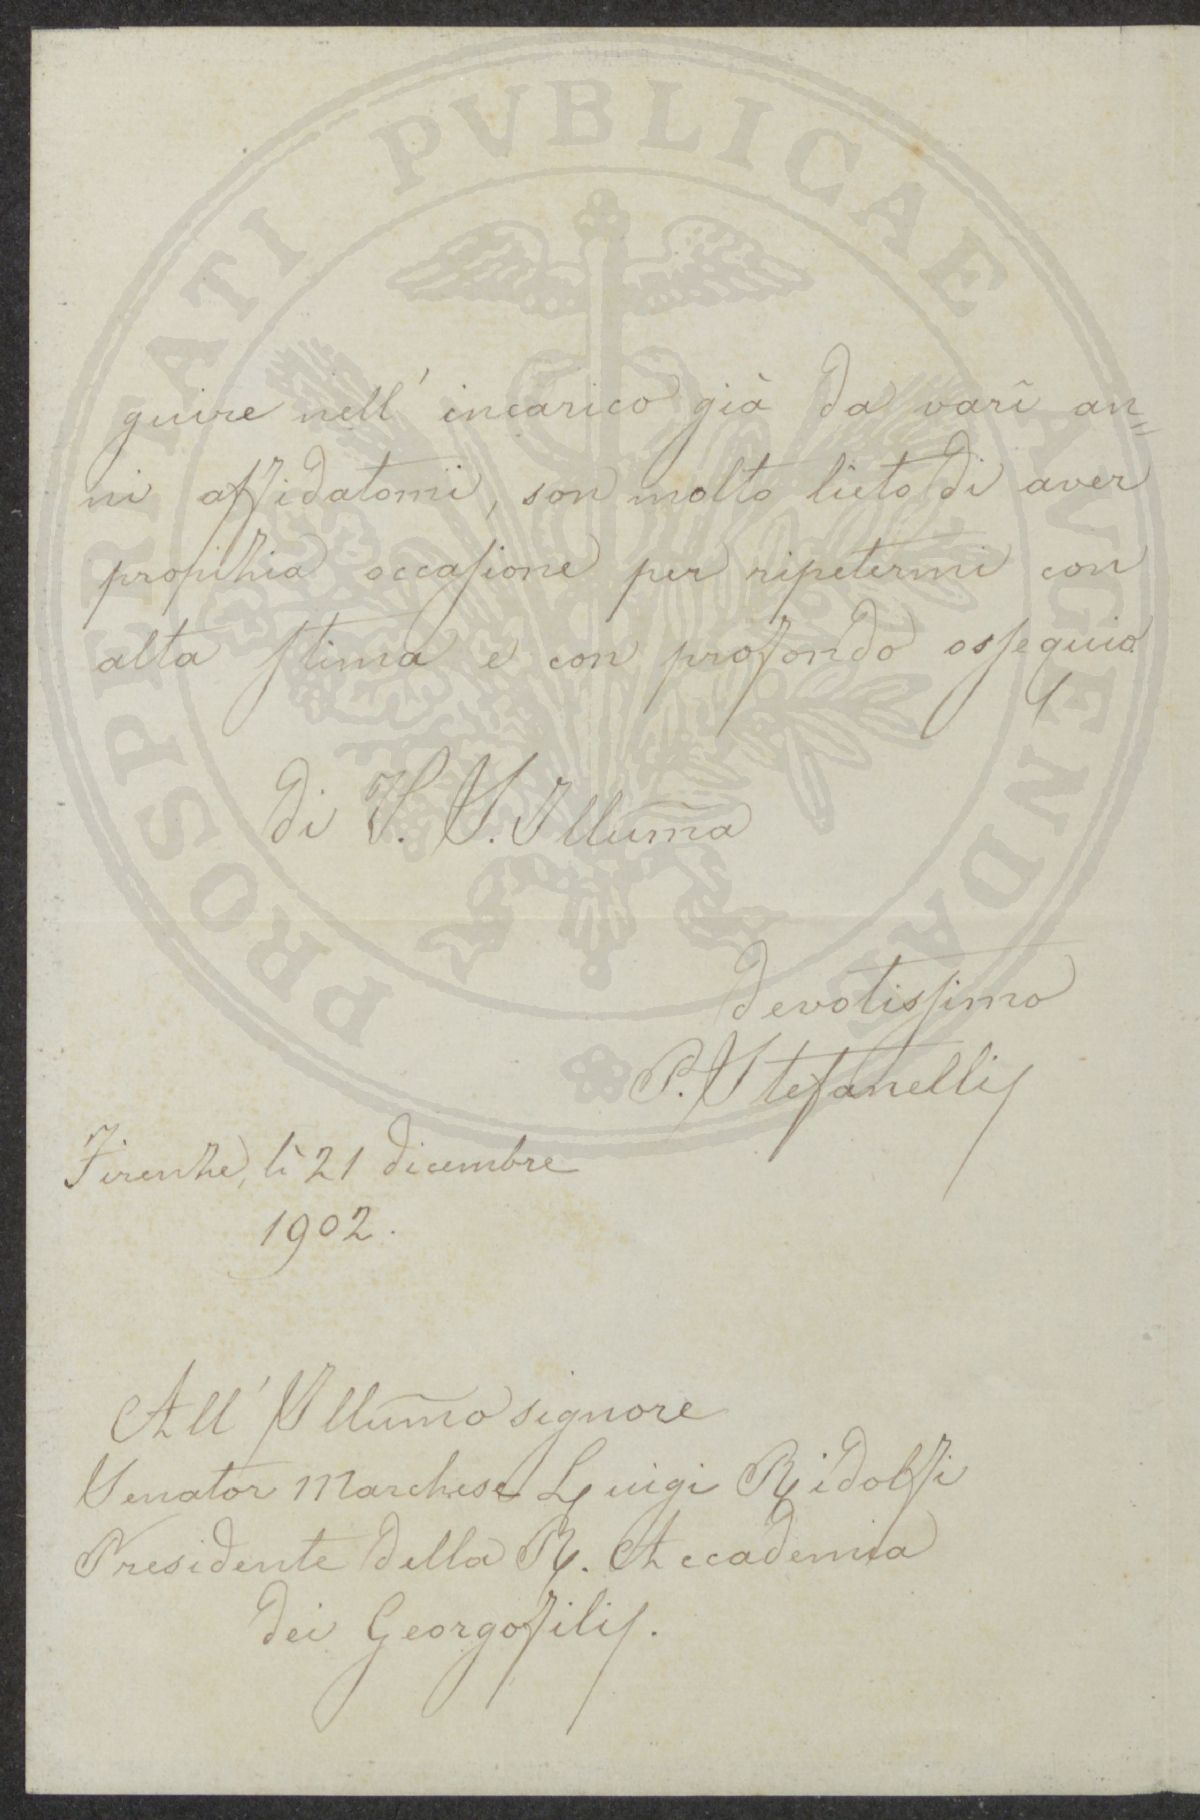 PROSPERITATI PVBLICAE AVGENDAE
guire nell' incarico già da varî an=
ni affidatomi, son molto lieto di aver
propizia occasione per ripetermi con
alta stima e con profondo ossequio
di V. S. Illum̃a
devotissimo
P. Stefanelli
Firenze, lì 21 dicembre
1902.
All' Illum̃o signore
Senator Marchese Luigi Ridolfi
Presidente della R. Accademia
dei Georgofili.